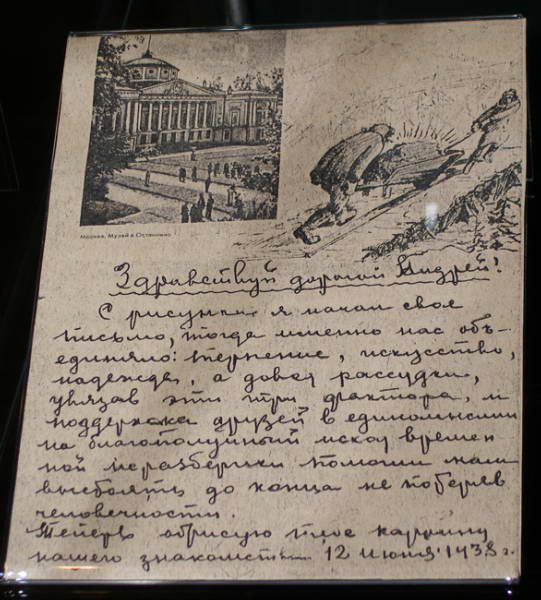 Москва. Музей в Останкино
Здравствуй дорогой Андрей!
С рисунка я начал свое
письмо, тогда именно нас объ-
единяло: терпение, искусство,
надежда, а довод рассудка,
увязав эти три фактора, и
поддержка друзей в единомыслии
на благополучный исход времен
ной неразберихи помогли нам
выстоять до конца не потеряв
человечности.
Теперь обрисую тебе картину
нашего знакомства 12 июня 1938 г.